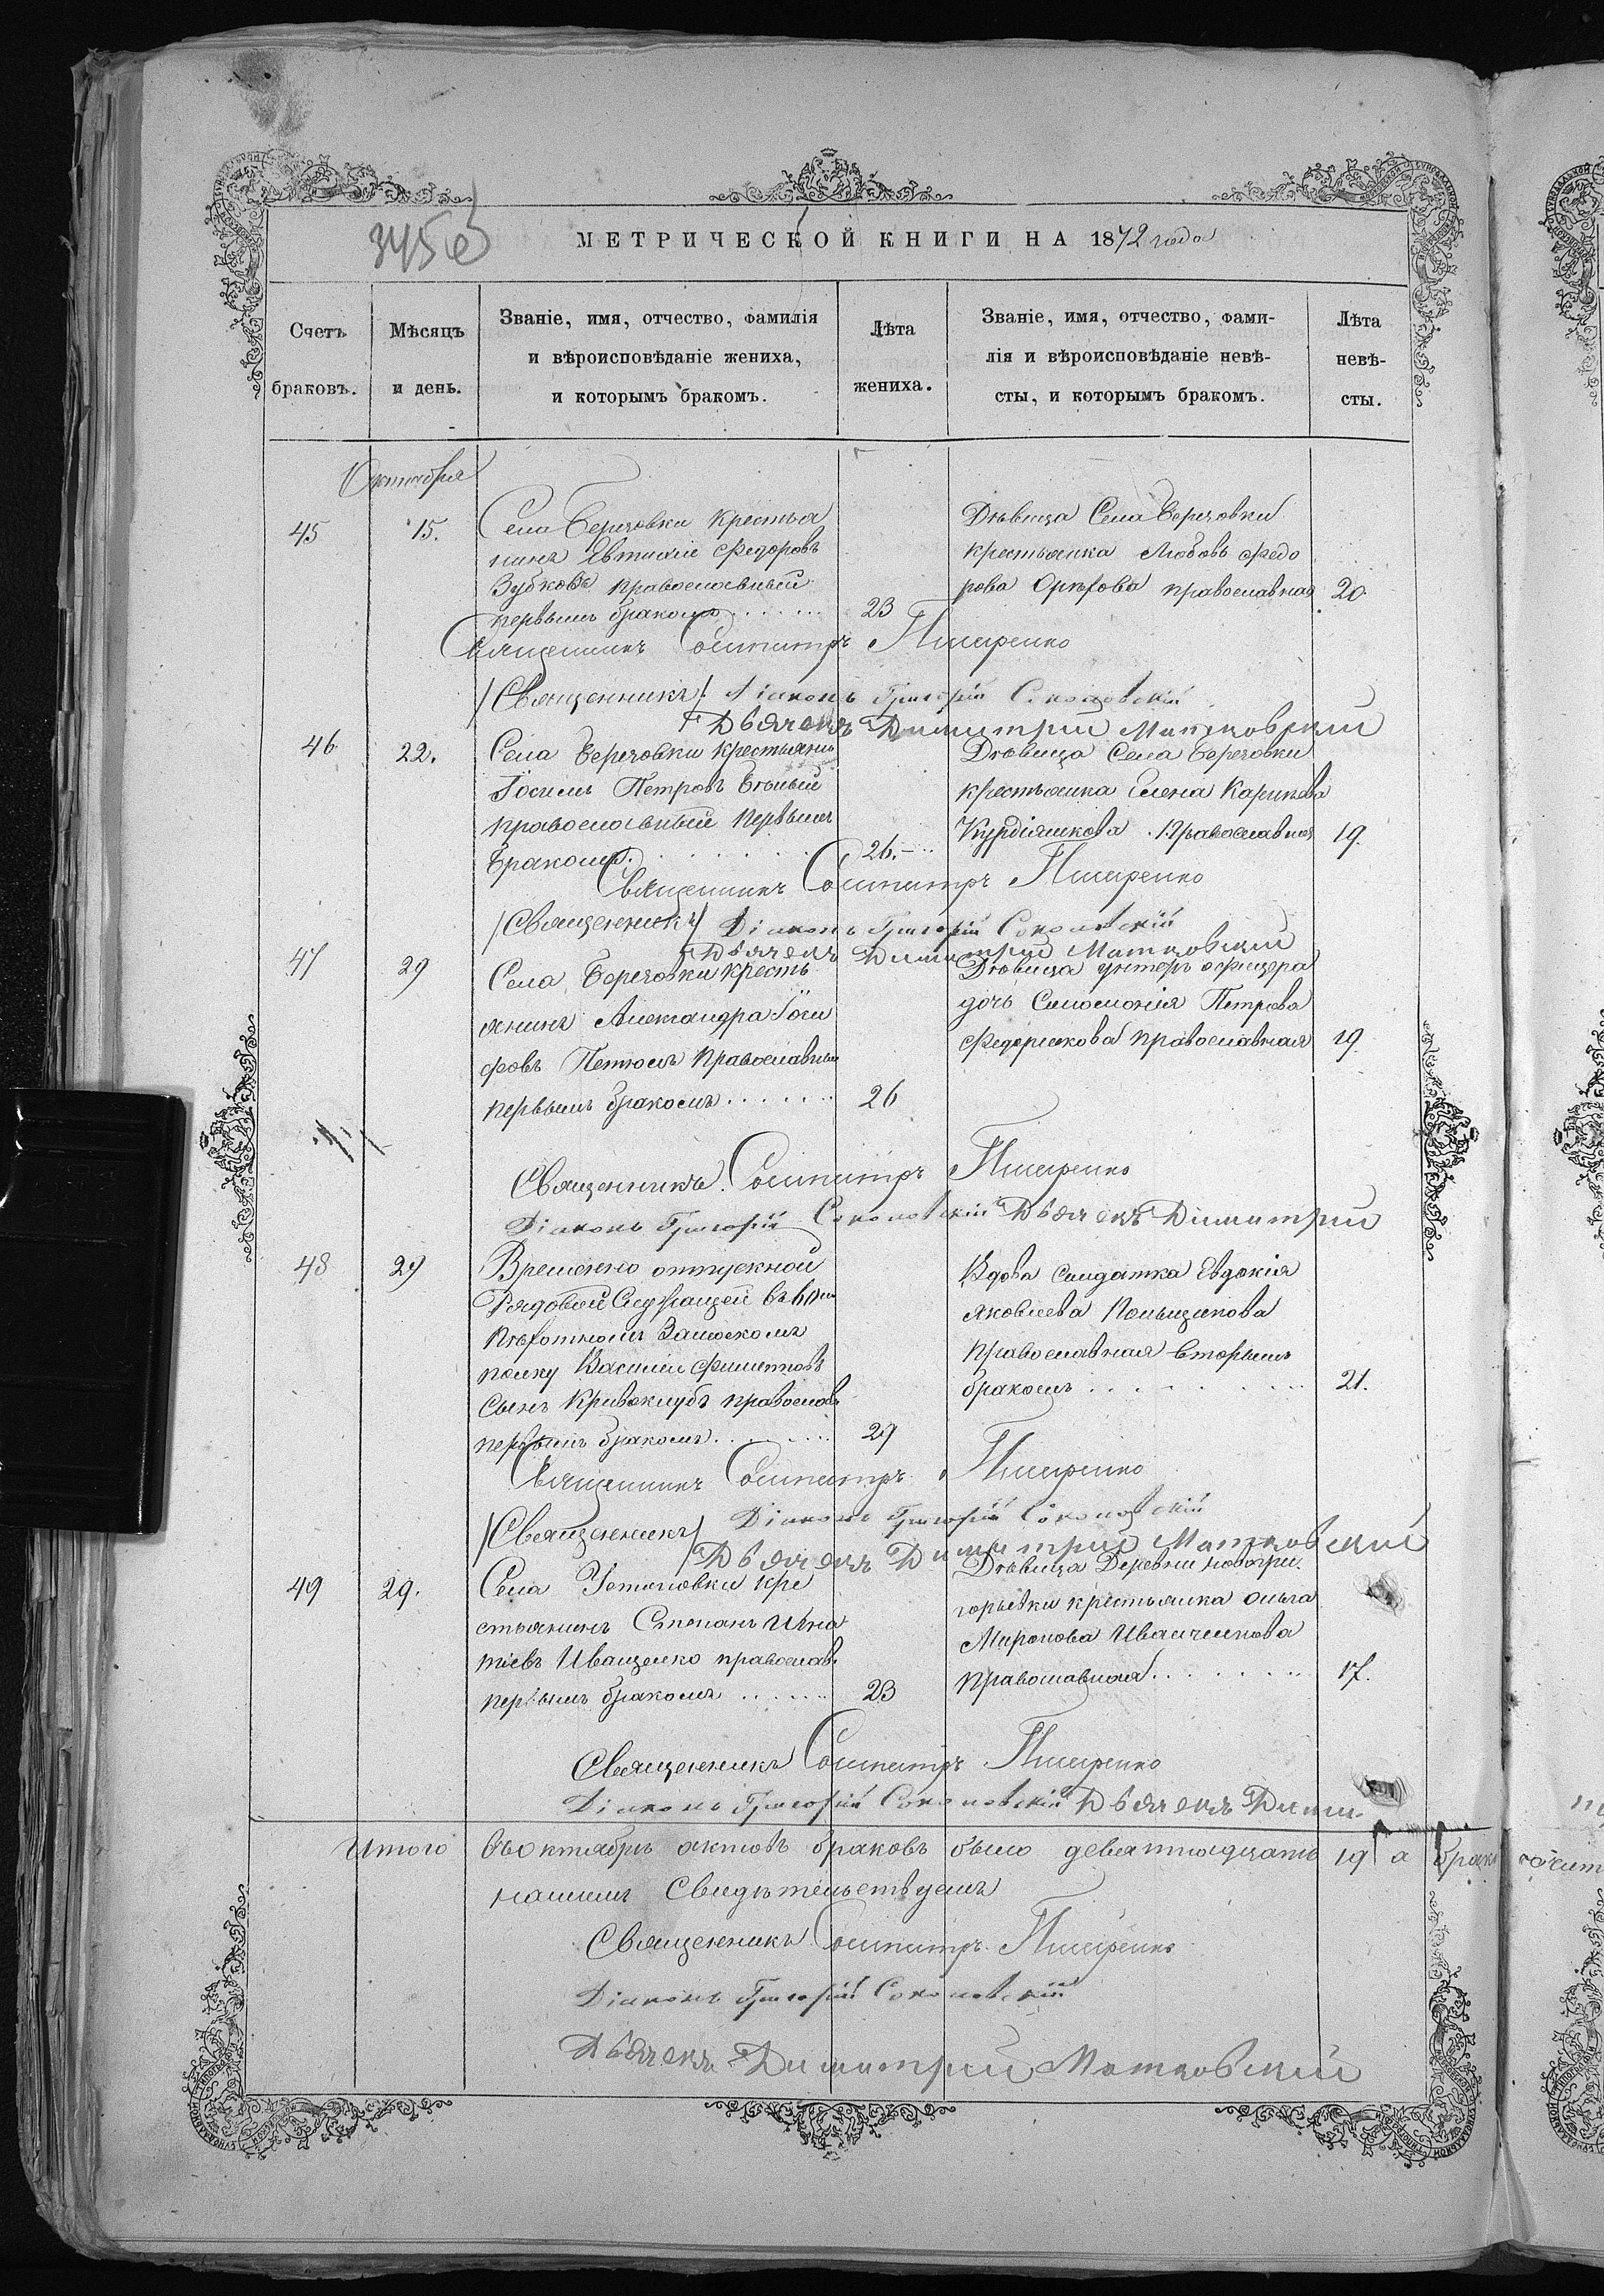 345
МЕТРИЧЕСКОЙ КНИГИ НА 1872 года
Счетъ браковъ.
Мѣсяцъ и день.
Званіе, имя, отчество, фамилія
и вѣроисповѣданіе жениха,
и которымъ бракомъ.
Лѣта жениха.
Званіе, имя, отчество, фами-
лія и вѣроисповѣданіе невѣ-
сты, и которымъ бракомъ.
Лѣта невѣ-
сты.
Октября
45
15.
Села Березовки Крестья
нинъ Евтихіе Федоровъ
Зубковъ православный
первымъ бракомъ
23
Дѣвица Села Березовки
крестьянка Любовь Федо
рова Орѣхова православная
20
Священникъ Сосипатръ Писаренко
/Священникъ/ Діаконъ Григорій Соколовскій
Дьячекъ Димитрій Матковский
46
22.
Села Березовки крестьянинъ
Іосифъ Петровъ Бѣлый
православный первымъ
бракомъ.
26.
Дѣвица Села Березовки
крестьянка Елена Карпова
Православная
19.
Священникъ Сосипатръ Писаренко
/Священникъ/ Діаконъ Григорій Соколовскій
Дьячекъ Димитрий Матковский
47
29
Села Березовки кресть
янинъ Александра Іоси
фовъ православный
первымъ бракомъ
26
Дѣвица унтеръ офицера
дочь Соломонія Петрова
православная
19.
Священникъ Сосипатръ Писаренко
Діаконъ Григорій Соколовскій Дьячекъ Димитрий
48
29
Временно отпускной
Рядовой Служащей въ 60мъ
пѣхотномъ Замоскомъ
полку Василій Филиповъ
сынъ Кривохлубъ православ
первымъ бракомъ
29
Вдова солдатка Евдокія
Яковлева
Православная вторымъ
бракомъ
21.
Священникъ Сосипатръ Писаренко
/Священникъ/ Діаконъ Григорій Соколовскій
Дьячекъ Димитрий Матковский
49
29.
Села кре
стьянинъ Степанъ Игна
тіевъ Иващенко православ.
первымъ бракомъ
23
Дѣвица Деревни Новогри
горьевки крестьянка Ольга
Миронова
Православная
17.
Священникъ Сосипатръ Писаренко
Діаконъ Григорій Соколовскій Дьячекъ Дими
Итого въ октябрѣ актовъ браковъ было девятнадцать 19 а
нашимъ Свидѣтельствуемъ
Священникъ Сосипатръ Писаренко
Діаконъ Григорій Соколовскій
Дьячекъ Димитрий Матковский